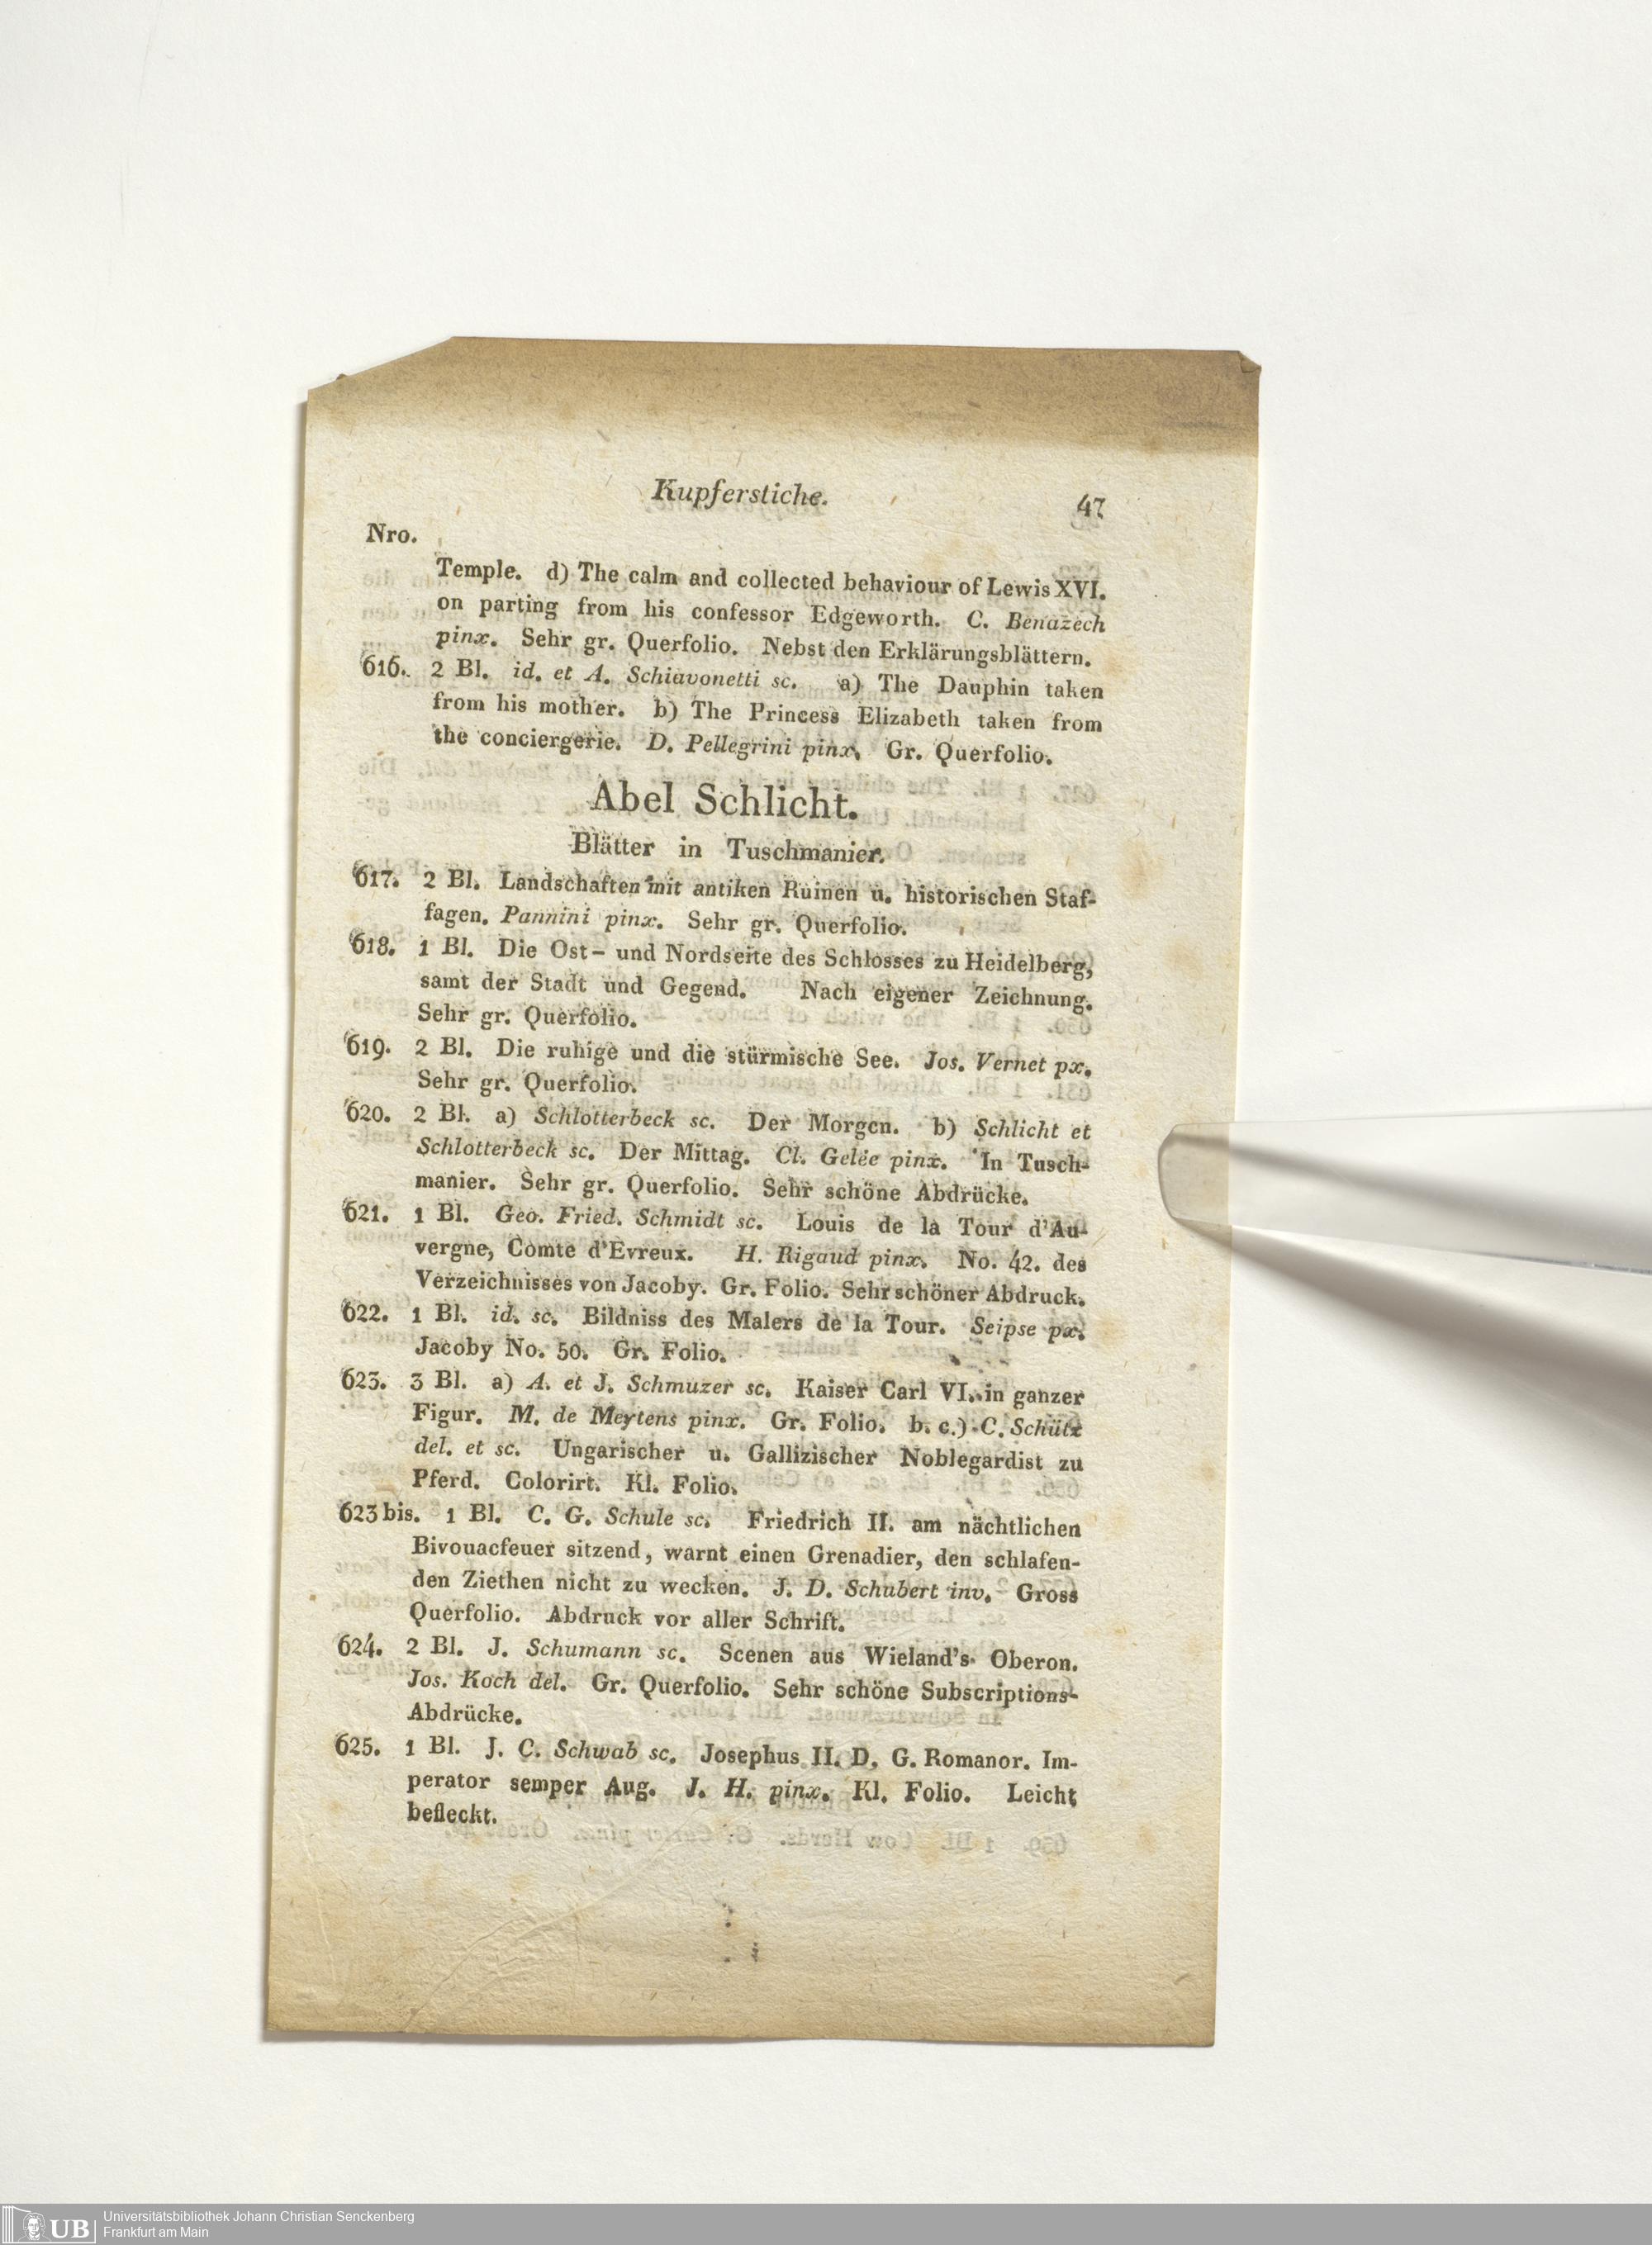 Kupferstiche. 47
Nro.
Temple. d) The calm and collected behaviour of Lewis XVI.
on parting from his confessor Edgeworth. C. Benazech
pinx. Sehr gr. Querfolio. Nebst den Erklärungsblättern.
616. 2 Bl. id. et A. Schiavonetti sc. a) The Dauphin taken
from his mother. b) The Princess Elizabeth taken from
the conciergerie. D. Pellegrini pinx. Gr. Querfolio.
Abel Schlicht.
Blätter in Tuschmanier.
617. 2 Bl. Landschaften mit antiken Ruinen u. historischen Staf-
fagen. Pannini pinx. Sehr gr. Querfolio.
618. 1 Bl. Die Ost- und Nordseite des Schlosses zu Heidelberg,
samt der Stadt und Gegend. Nach eigener Zeichnung.
Sehr gr. Querfolio.
619. 2 Bl. Die ruhige und die stürmische See. Jos. Vernet px.
Sehr gr. Querfolio.
620. 2 Bl. a) Schlotterbeck sc. Der Morgen. b) Schlicht et
Schlotterbeck sc. Der Mittag. Cl. Gelée pinx. In Tusch-
manier. Sehr gr. Querfolio. Sehr schöne Abdrücke.
621. 1 Bl. Geo. Fried. Schmidt sc. Louis de la Tour d'Au-
vergne, Comte d'Evreux. H. Rigaud pinx. No. 42. des
Verzeichnisses von Jacoby. Gr. Folio. Sehr schöner Abdruck.
622. 1 Bl. id. sc. Bildniss des Malers de la Tour. Seipse px.
Jacoby No. 50. Gr. Folio.
623. 3 Bl. a) A. et J. Schmuzer sc. Kaiser Carl VI. in ganzer
Figur. M. de Meytens pinx. Gr. Folio. b. c.) C. Schütz
del. et sc. Ungarischer u. Gallizischer Noblegardist zu
Pferd. Colorirt. Kl. Folio.
623 bis. 1 Bl. C. G. Schule sc. Friedrich II. am nächtlichen
Bivouacfeuer sitzend, warnt einen Grenadier, den schlafen-
den Ziethen nicht zu wecken. J. D. Schubert inv. Gross
Querfolio. Abdruck vor aller Schrift.
624. 2 Bl. J. Schumann sc. Scenen aus Wieland's Oberon.
Jos. Koch del. Gr. Querfolio. Sehr schöne Subscriptions-
Abdrücke.
625. 1 Bl. J. C. Schwab sc. Josephus II. D. G. Romanor. Im-
perator semper Aug. J. H. pinx. Kl. Folio. Leicht
befleckt.
UB Universitätsbibliothek Johann Christian Senckenberg
Frankfurt am Main